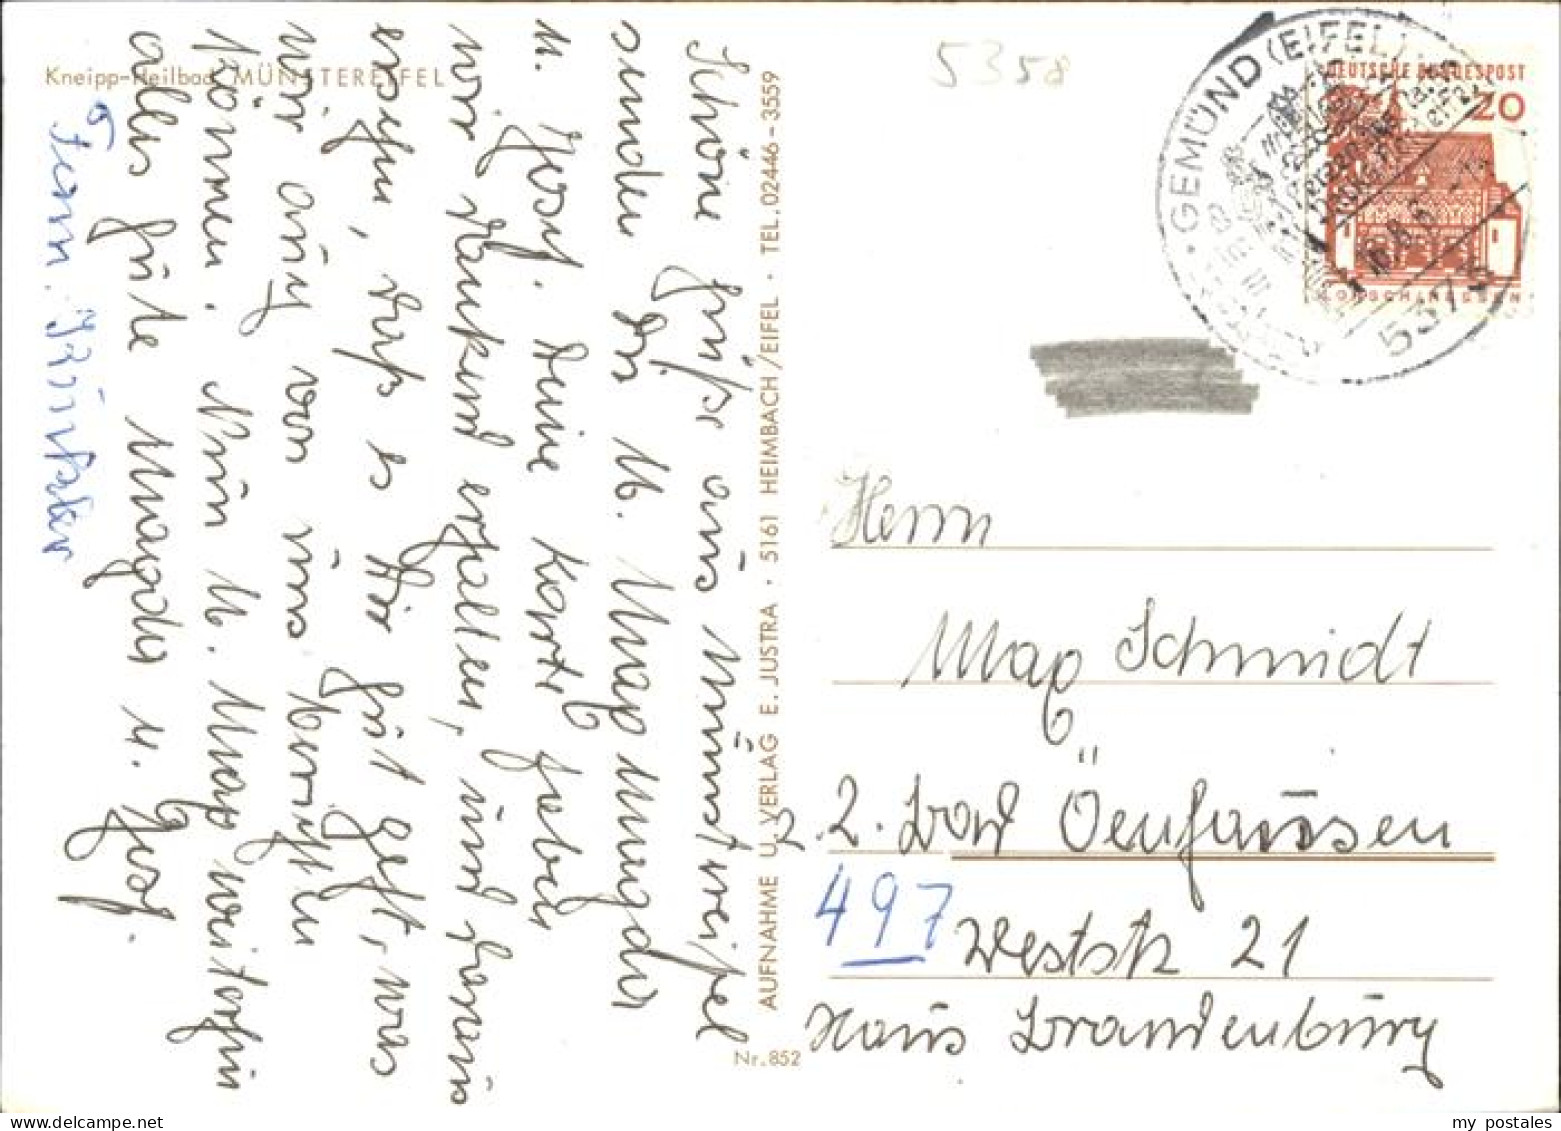 Kneipp-Heilbad MÜNSTEREIFEL
Schöne Grüße aus Münstereifel
senden Dir lb. Max Magda
u. Josef. Deine Karte haben
wir dankend erhalten, und daraus
ersehen, daß es Dir gut geht, was
wir auch von uns berichten
können. Nun lb. Max weiterhin
alles Gute Magda u. Josef.
Fam.
AUFNAHME U. VERLAG E. JUSTRA · 5161 HEIMBACH/EIFEL · TEL. 02446-3559
Nr. 852
5358
GEMÜND (EIFEL)
5372
DEUTSCHE BUNDESPOST
20
LORSCH/HESSEN
Herrn
Max Schmidt
2. Bad Oeynhausen
497
Weststr 21
Haus Brandenburg
my postales